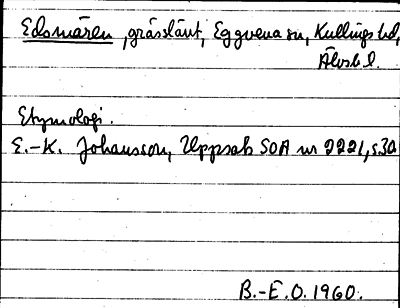 Edsmären, grässlänt, Eggvena sn, Kullings hd,
Älvsb l.
Etymologi.
E.-K. Johansson, Uppsats SOA nr 2221, s.30
B.-E.O. 1960.